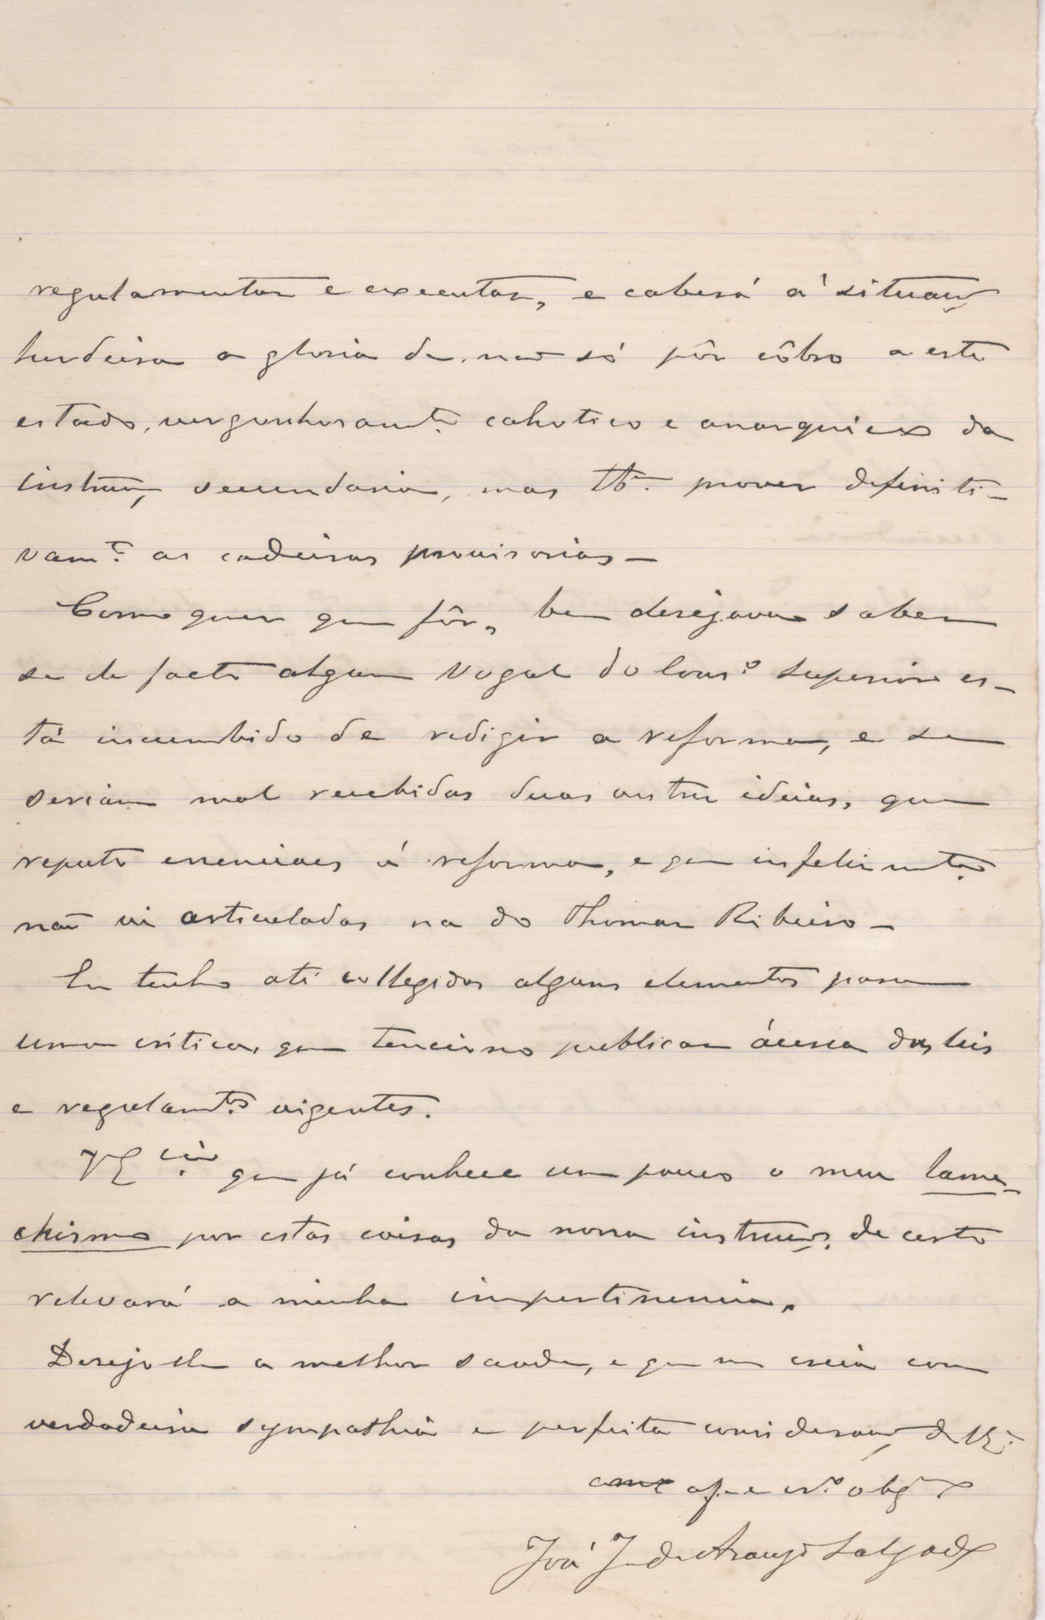 regulamentar e executar, e caberá á situação
herdeira a gloria de não só pôr côbro a este
estado, vergonhosamte cahotico e anarquico da
instrução secundaria, mas tbem prover definiti-
vamte as cadeiras provisorias —
Como quer que fôr, bem desejava saber
se de facto algum vogal do Conso Superior es-
tá incumbido de redigir a reforma, e se
seriam mal recebidas duas outras ideias, que
reputo essenciaes á reforma, e que infelizmte
não vi articuladas na do Thomaz Ribeiro —
Eu tenho até collegidos alguns elementos para
uma critica, que tenciono publicar ácerca das leis
e regulamtos vigentes.
VExcia que já conhece um pouco o meu lame-
chismo por estas coisas da nossa instrução, de certo
relevará a minha impertinencia.
Desejo-lhe a melhor saude, e que me creia com
verdadeira sympathia e perfeita consideração, de VE.
amo af. e cro obgdo
José J. de Araujo Salgado